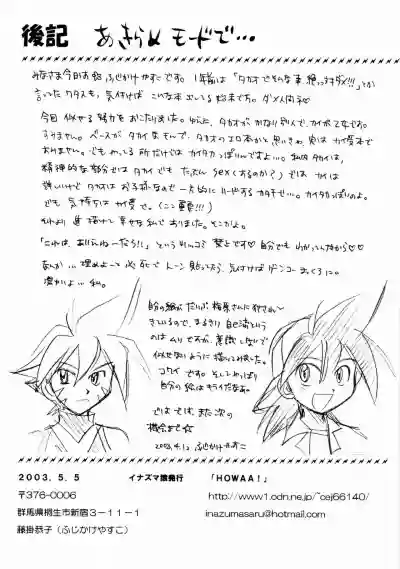 後記 あきらめモードで…
みなさま今日は、ふじかけやすこです。1年前は「タカオでそんな事絶っ対ダメ!!!」とか
言ってたワタスも、気付けば こんな本 出してる始末です。ダメ人間
今回 似せる努力を おこたりました。ゆえに、タカオが かなり別人で、カイが乙女です。
すみません。ベースが タカイ なもんで、タカオのエロ本かと思いきや、実は カイ受本で
ありません。でも やってる所だけでは カイタカっぽいんですよ…。私的 タカイは、
精神的な部分では タカイ でも たぶん sex(するのか?)では カイは
難しいけど タカオ は お子様なので 一方的に リードする カタチで…。カイタカっぽいのよ。
でも 気持ちは カイ受で。(ここ重要!!!)
「これは、ありえねーだろ!!」という ツッコミ 禁止です 自分でも わかってんだから♡♡
なんか… 埋めよーと 必死で トーン 貼ってたら、気付けば ゲンコー まっくろに。
凄かいよ… 私。
自分の絵が だいぶ 梅原さんに 犯され
きているので、まるきり 自己流という
のは ムリ ですが、意識しないで
似せないように 描いてみました。
コワイ です。そして やっぱり
自分の 絵は キライだなあ。
では では、また 次の
機会まで☆
2003.4.12 ふじかけやすこ
2003.5.5 イナズマ猿発行 「HOWAA!」
〒376-0006 http://www1.odn.ne.jp/~cej66140/
群馬県桐生市新宿3-11-1 inazumasaru@hotmail.com
藤掛恭子(ふじかけやすこ)